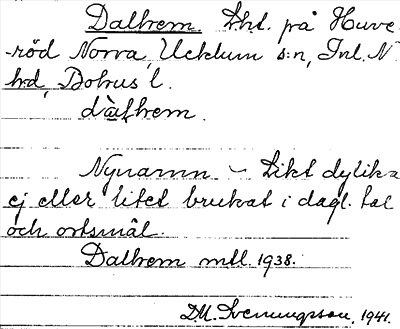 Dalhem. Lht. på Huve-
-röd Norra, Ucklum s:n, Inl. N
hd, Bohus l.
dàlhem.
Nynamn – Likt dylika
ej eller litet brukat i dagl. tal
och ortsmål.
Dalhem mtl. 1938.
D.M. Svenungsson, 1941.